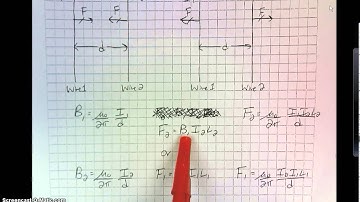 F F F F
d d
Wire 1 Wire 2 Wire 1 Wire 2
B₁ = μ₀/2π I₁/d F₂ = μ₀/2π I₁I₂L₂/d
F₂ = B₁ I₂L₂
or
B₂ = μ₀/2π I₂/d F₁ = I₁L₁ F₁ = μ₀/2π I₂I₁L₁/d
Screencast-O-Matic.com